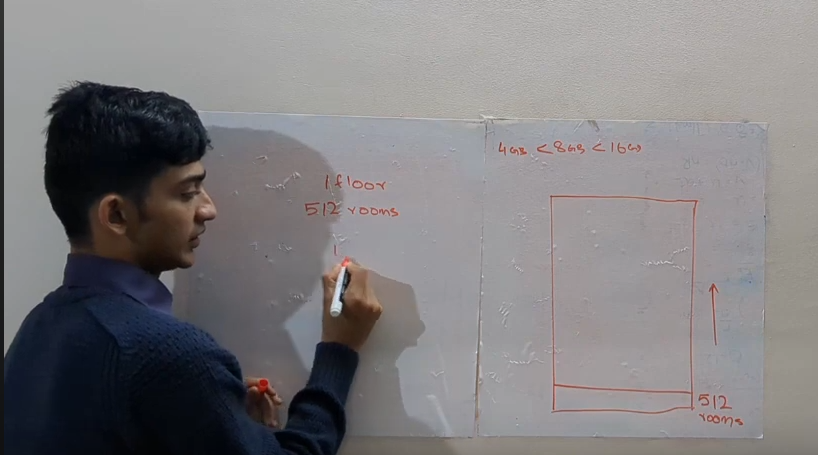 1 floor
512 rooms
1
4GB < 8GB < 16GB
512
rooms